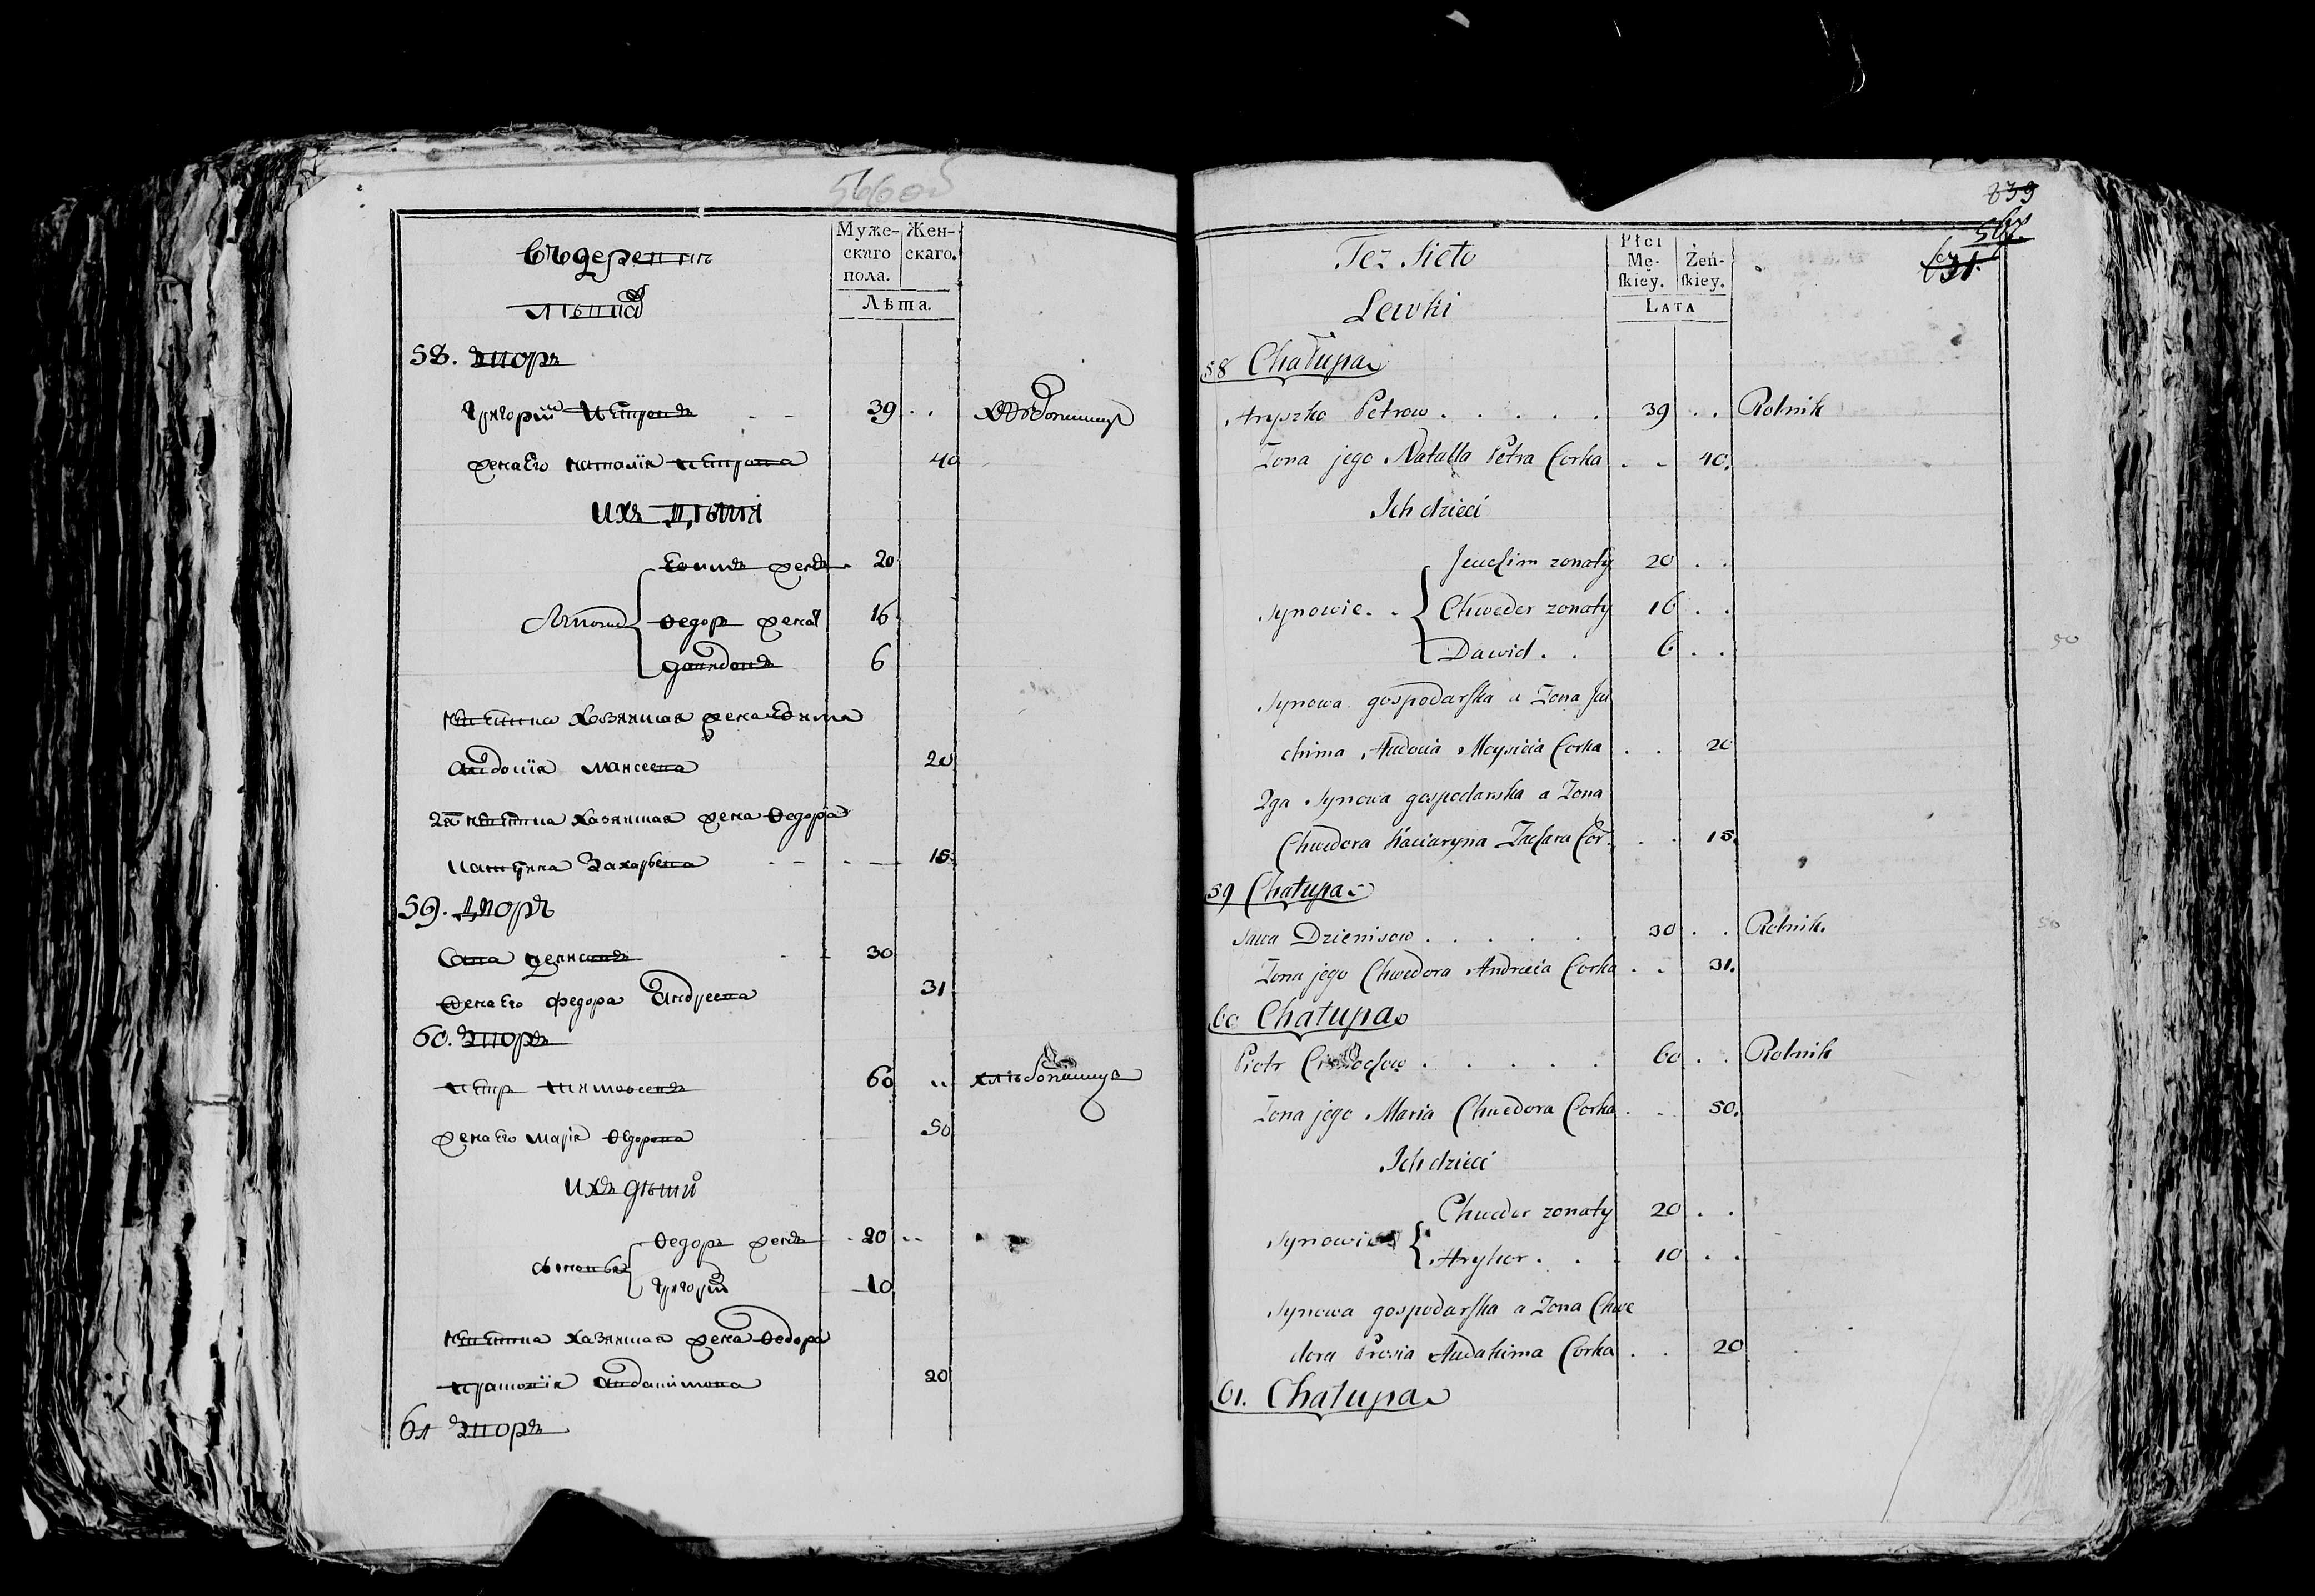 566 об
Въ деревнѣ
Муже-
скаго
пола.
Жен-
скаго.
Лѣта.
58. Дворъ
Григорій Петровъ - - 39 . . Хлѣбопашецъ
жена Его Наталія Петрова 40
Ихъ Дѣти
Ефимъ женатъ 20
Сыновья Федоръ женатъ 16
Давыдъ 6
Невѣстка хозяйская жена Ефима
Авдотія Моисеева 20
2я Невѣстка хозяйская жена Федора
Катерина Захарьева 18
59. Дворъ
Сава Денисовъ 30
жена Его Федора Андреева 31
60. Дворъ
Петръ Тимофеевъ 60 .. хлѣбопашецъ
жена Его Марія Федорова 50
Ихъ дѣти
Федоръ женатъ 20 ..
Сыновья Григорій 10
Невѣстка хозяйская жена Федора
Авдакимова 20
61 Дворъ
839
Też Sieło
Lewki
Płci
Mę-
ſkiey.
Żeń-
ſkiey.
LATA
58 Chałupa
Hryszko Petrow . . . . . 39 . . Rolnik
Zona jego Natalla Petra Corka . . 40.
Ich dzieci
Jeuchim zonaty 20 . .
Synowie . . Chweder zonaty 16 . .
Dawid . . 6 . .
Synowa gospodarſka a Zona Jeu
chima Audocia Moysieia Corka . . 20
2ga Synowa gospodarska a Zona
Chwedora Kaciaryna Zachara Cor. . . 18.
59 Chałupa
Sawa Dzienisow . . . . . 30 . . Rolnik.
Zona jego Chwedora Andreia Corka . . 31.
60 Chałupa
Piotr . . . . . 60 . . Rolnik
Zona jego Maria Chwedora Corka . . 50.
Ich dzieci
Chweder zonaty 20 . .
Synowie Hryhor . . . 10 . .
Synowa gospodarſka a Zona Chwe
dora Prosia Audakima Corka . . 20
61. Chałupa